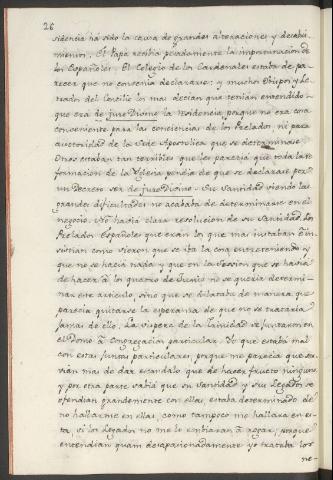 26
sidencia há sido la causa de grandes alteraciones y decabi-
mientos. El Papa recibia pesadamente la importunacion de
los Españoles. El Colegio de los Cardenales estaba de pa-
recer que no convenia declararse; y muchos Obispos y Le-
trados del Concilio lo mas decian que tenian entendido
que era de jure Divino la residencia porque no era cosa
conveniente para las conciencias de los Prelados, ni para
auctoridad de la Sede Apostolica que se determinase.
Otros estaban tan terribles que les parecia que toda la re
formacion de la Yglesia pendia de que se declarase por
un Decreto ser de jure Divino. Su Santidad viendo las
grandes dificultades no acababa de determinarse en el
negocio. No habia clara resolucion de su Santidad. Los
Prelados Españoles que eran los que mas instaban é in-
sistian como vieron que se iba la cosa entreteniendo y
que no se hacia nada y que en la Session que se habia
de hacer á los quatro de Junio no se queria determi-
nar este articulo, sino que se dilataba de manera que
parecia quitarse la esperanza de que no se trataria
jamas de ello. La vispera de la Trinidad se juntaron en
el Domo á Congregacion particular. Yo que estaba mal
con estas juntas particulares, porque me parecia que ser-
vian mas de dar escandalo que de hacer fructo ninguno
y por otra parte sabia que su Santidad y sus Legados se
ofendian grandemente con ellas, estaba determinado de
no hallarme en ellas, como tampoco me hallara en es-
ta, si los Legados no me lo embiaran á rogar, porque
entendian quam desapasionadamente yo trataba los
ne-